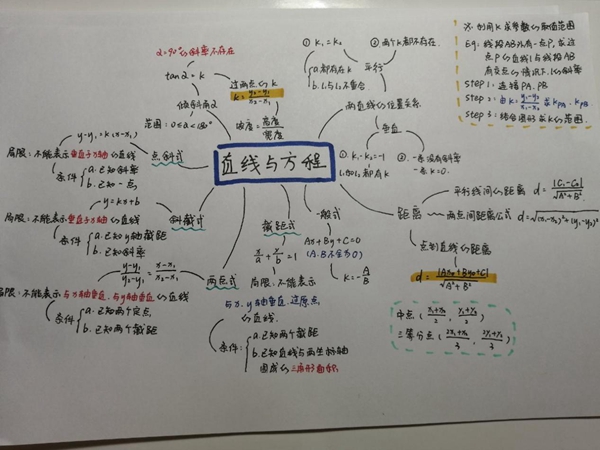 直线与方程
α=90°的斜率不存在
tanα=k
倾斜角α
范围:0≤α<180°
过两点的k
k=\frac{y_2-y_1}{x_2-x_1}
坡度=\frac{高度}{宽度}
① k₁=k₂
② 两个k都不存在
a.都存在k
b.l₁与l₂不重合
平行
两直线的位置关系
垂直
① k₁·k₂=-1
l₁与l₂都有k
② 一条没有斜率
一条k=0
※ 利用k求参数的取值范围
Eg:线段AB外有一点P,求过
点P的直线l与线段AB
有交点的情况下,l的斜率
Step1:连接PA、PB
Step2:由k=\frac{y_1-y_2}{x_1-x_2}求kPA、kPB
Step3:结合图形求k的范围
点斜式
y-y₁=k(x-x₁)
局限:不能表示垂直于x轴的直线
条件
a.已知斜率
b.已知一点
斜截式
y=kx+b
局限:不能表示垂直于x轴的直线
条件
a.已知y轴截距
b.已知斜率
两点式
\frac{y-y_1}{y_2-y_1}=\frac{x-x_1}{x_2-x_1}
局限:不能表示与x轴垂直、与y轴垂直的直线
条件
a.已知两个定点
b.已知两个截距
截距式
\frac{x}{a}+\frac{y}{b}=1
局限:不能表示
与x、y轴垂直、过原点
的直线
条件:
a.已知两个截距
b.已知直线与两坐标轴
围成的三角形面积
一般式
Ax+By+C=0
(A、B不全为0)
k=-\frac{A}{B}
距离
平行线间的距离 d=\frac{|C_1-C_2|}{\sqrt{A^2+B^2}}
两点间距离公式 d=\sqrt{(x_1-x_2)^2+(y_1-y_2)^2}
点到直线的距离
d=\frac{|Ax_0+By_0+C|}{\sqrt{A^2+B^2}}
中点(\frac{x_1+x_2}{2},\frac{y_1+y_2}{2})
三等分点(\frac{2x_1+x_2}{3},\frac{2y_1+y_2}{3})